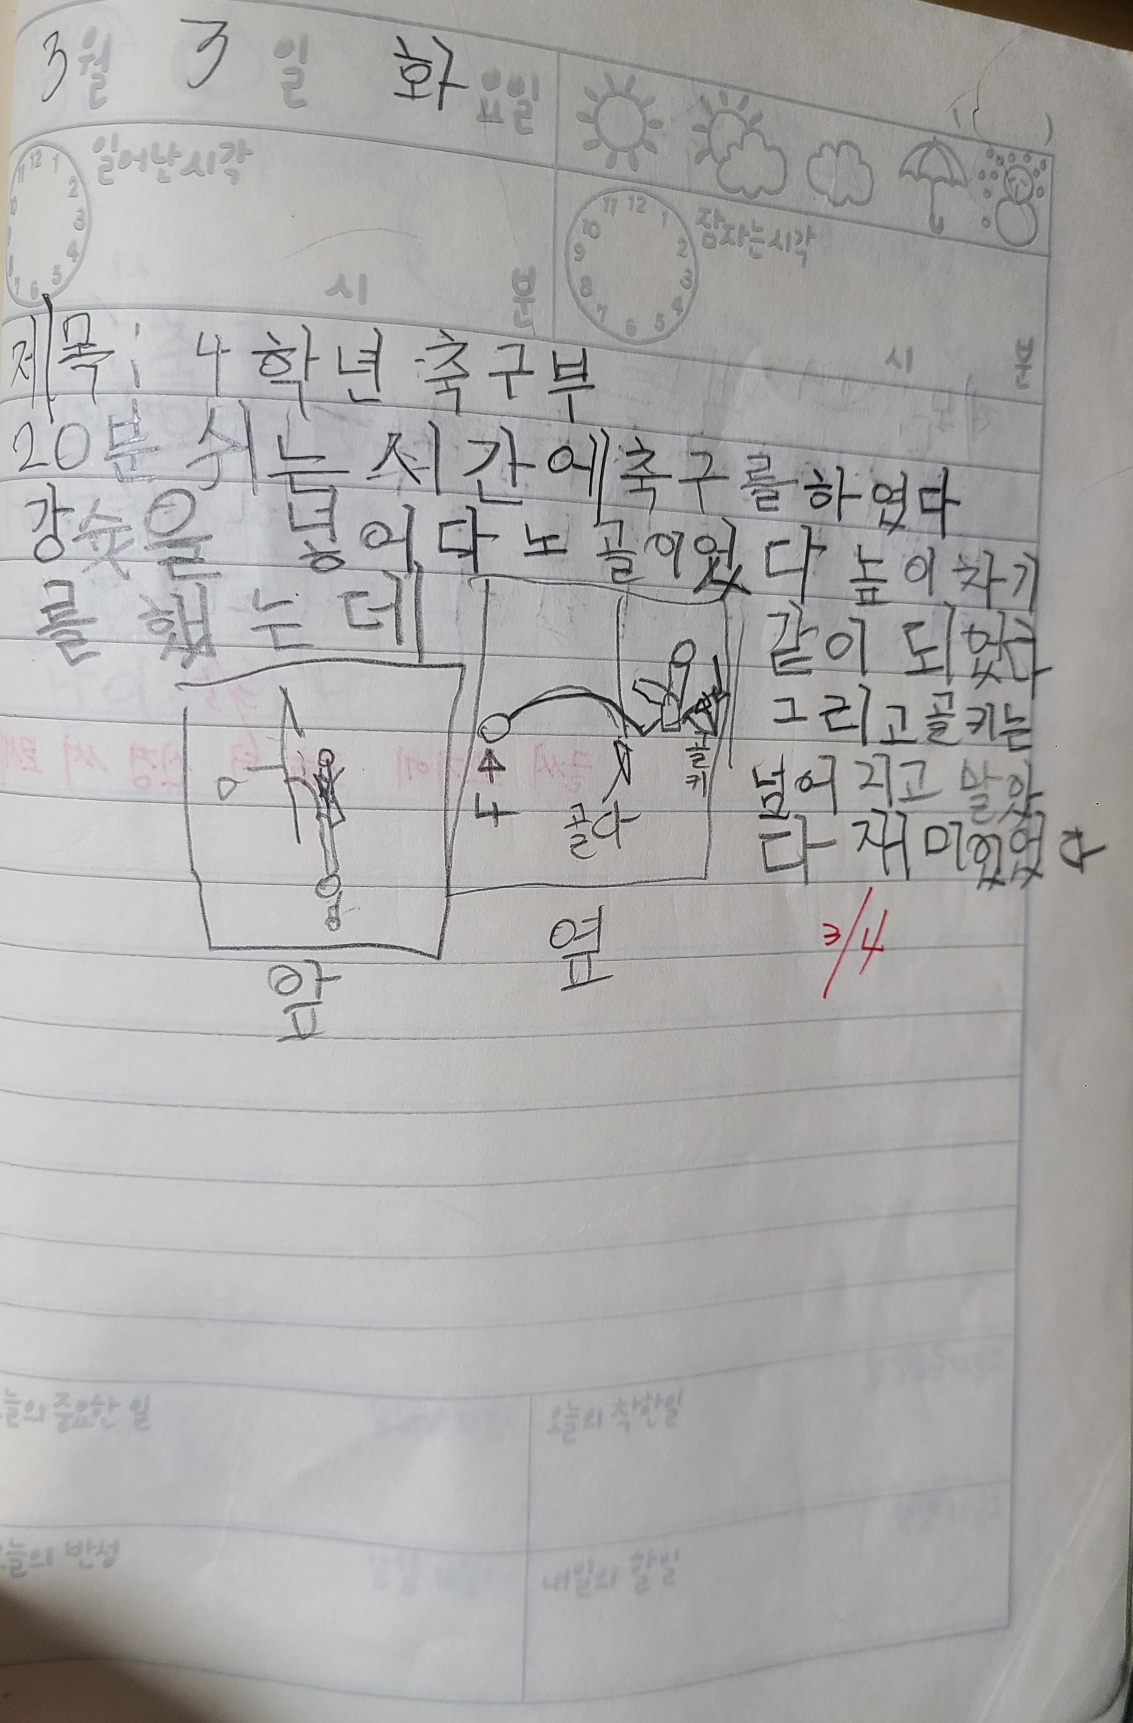 3월 3일 화요일
일어난시각
12 1 2 3 4 5 6 7
시 분
잠자는시각
11 12 1 2 3 4 5 6 7 8 9 10
시 분
제목: 4학년 축구부
20분 쉬는 시간에 축구를 하였다
강슛을 넣어다 노 골이었다 높이차기
를 했는데 같이 되었다
그리고골키는
넘어지고 말았
다 재미있었다
골키
골다
앞
옆
3/4
오늘의 중요한 일
오늘의 착한일
오늘의 반성
내일의 할일